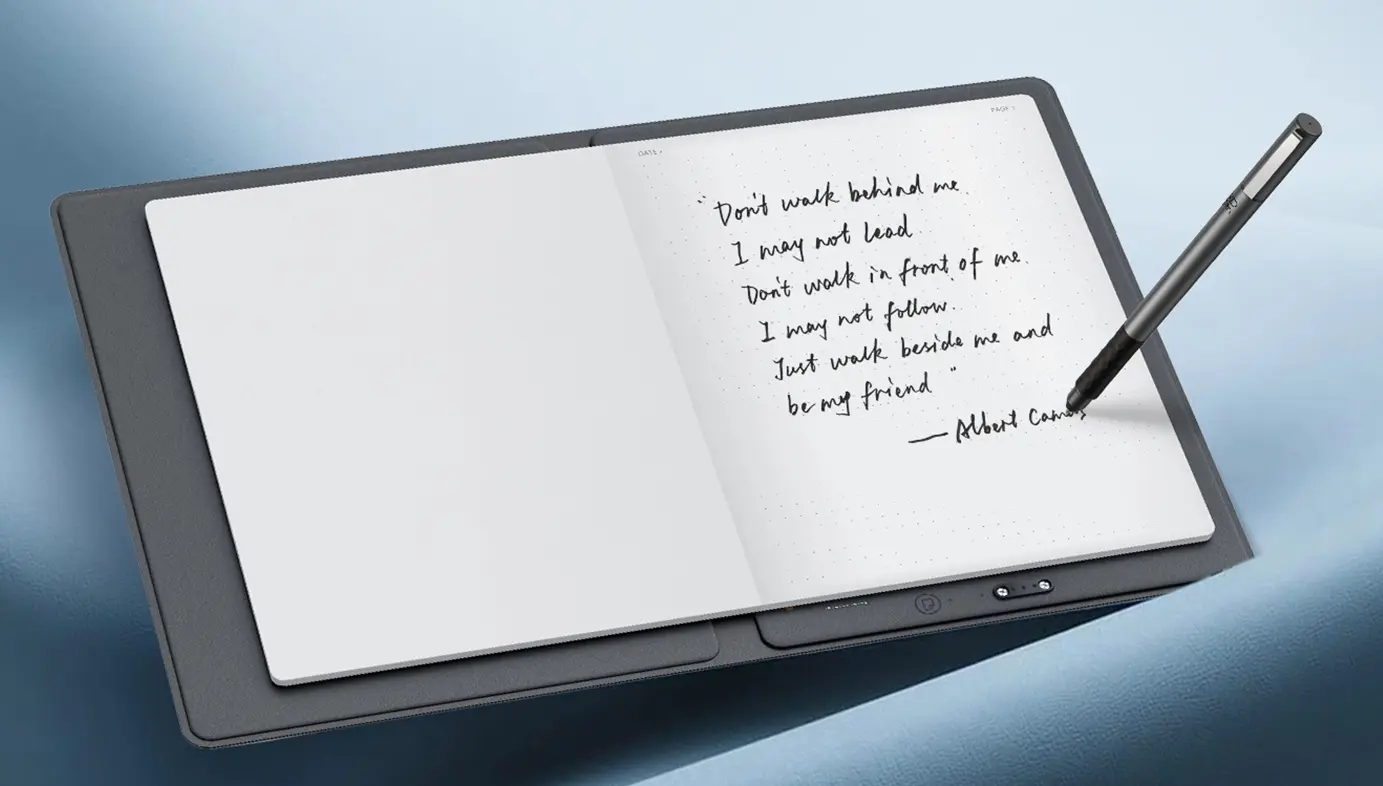 DATE
PAGE
“Don't walk behind me
I may not lead
Don't walk in front of me
I may not follow.
Just walk beside me and
be my friend ”
— Albert Camus